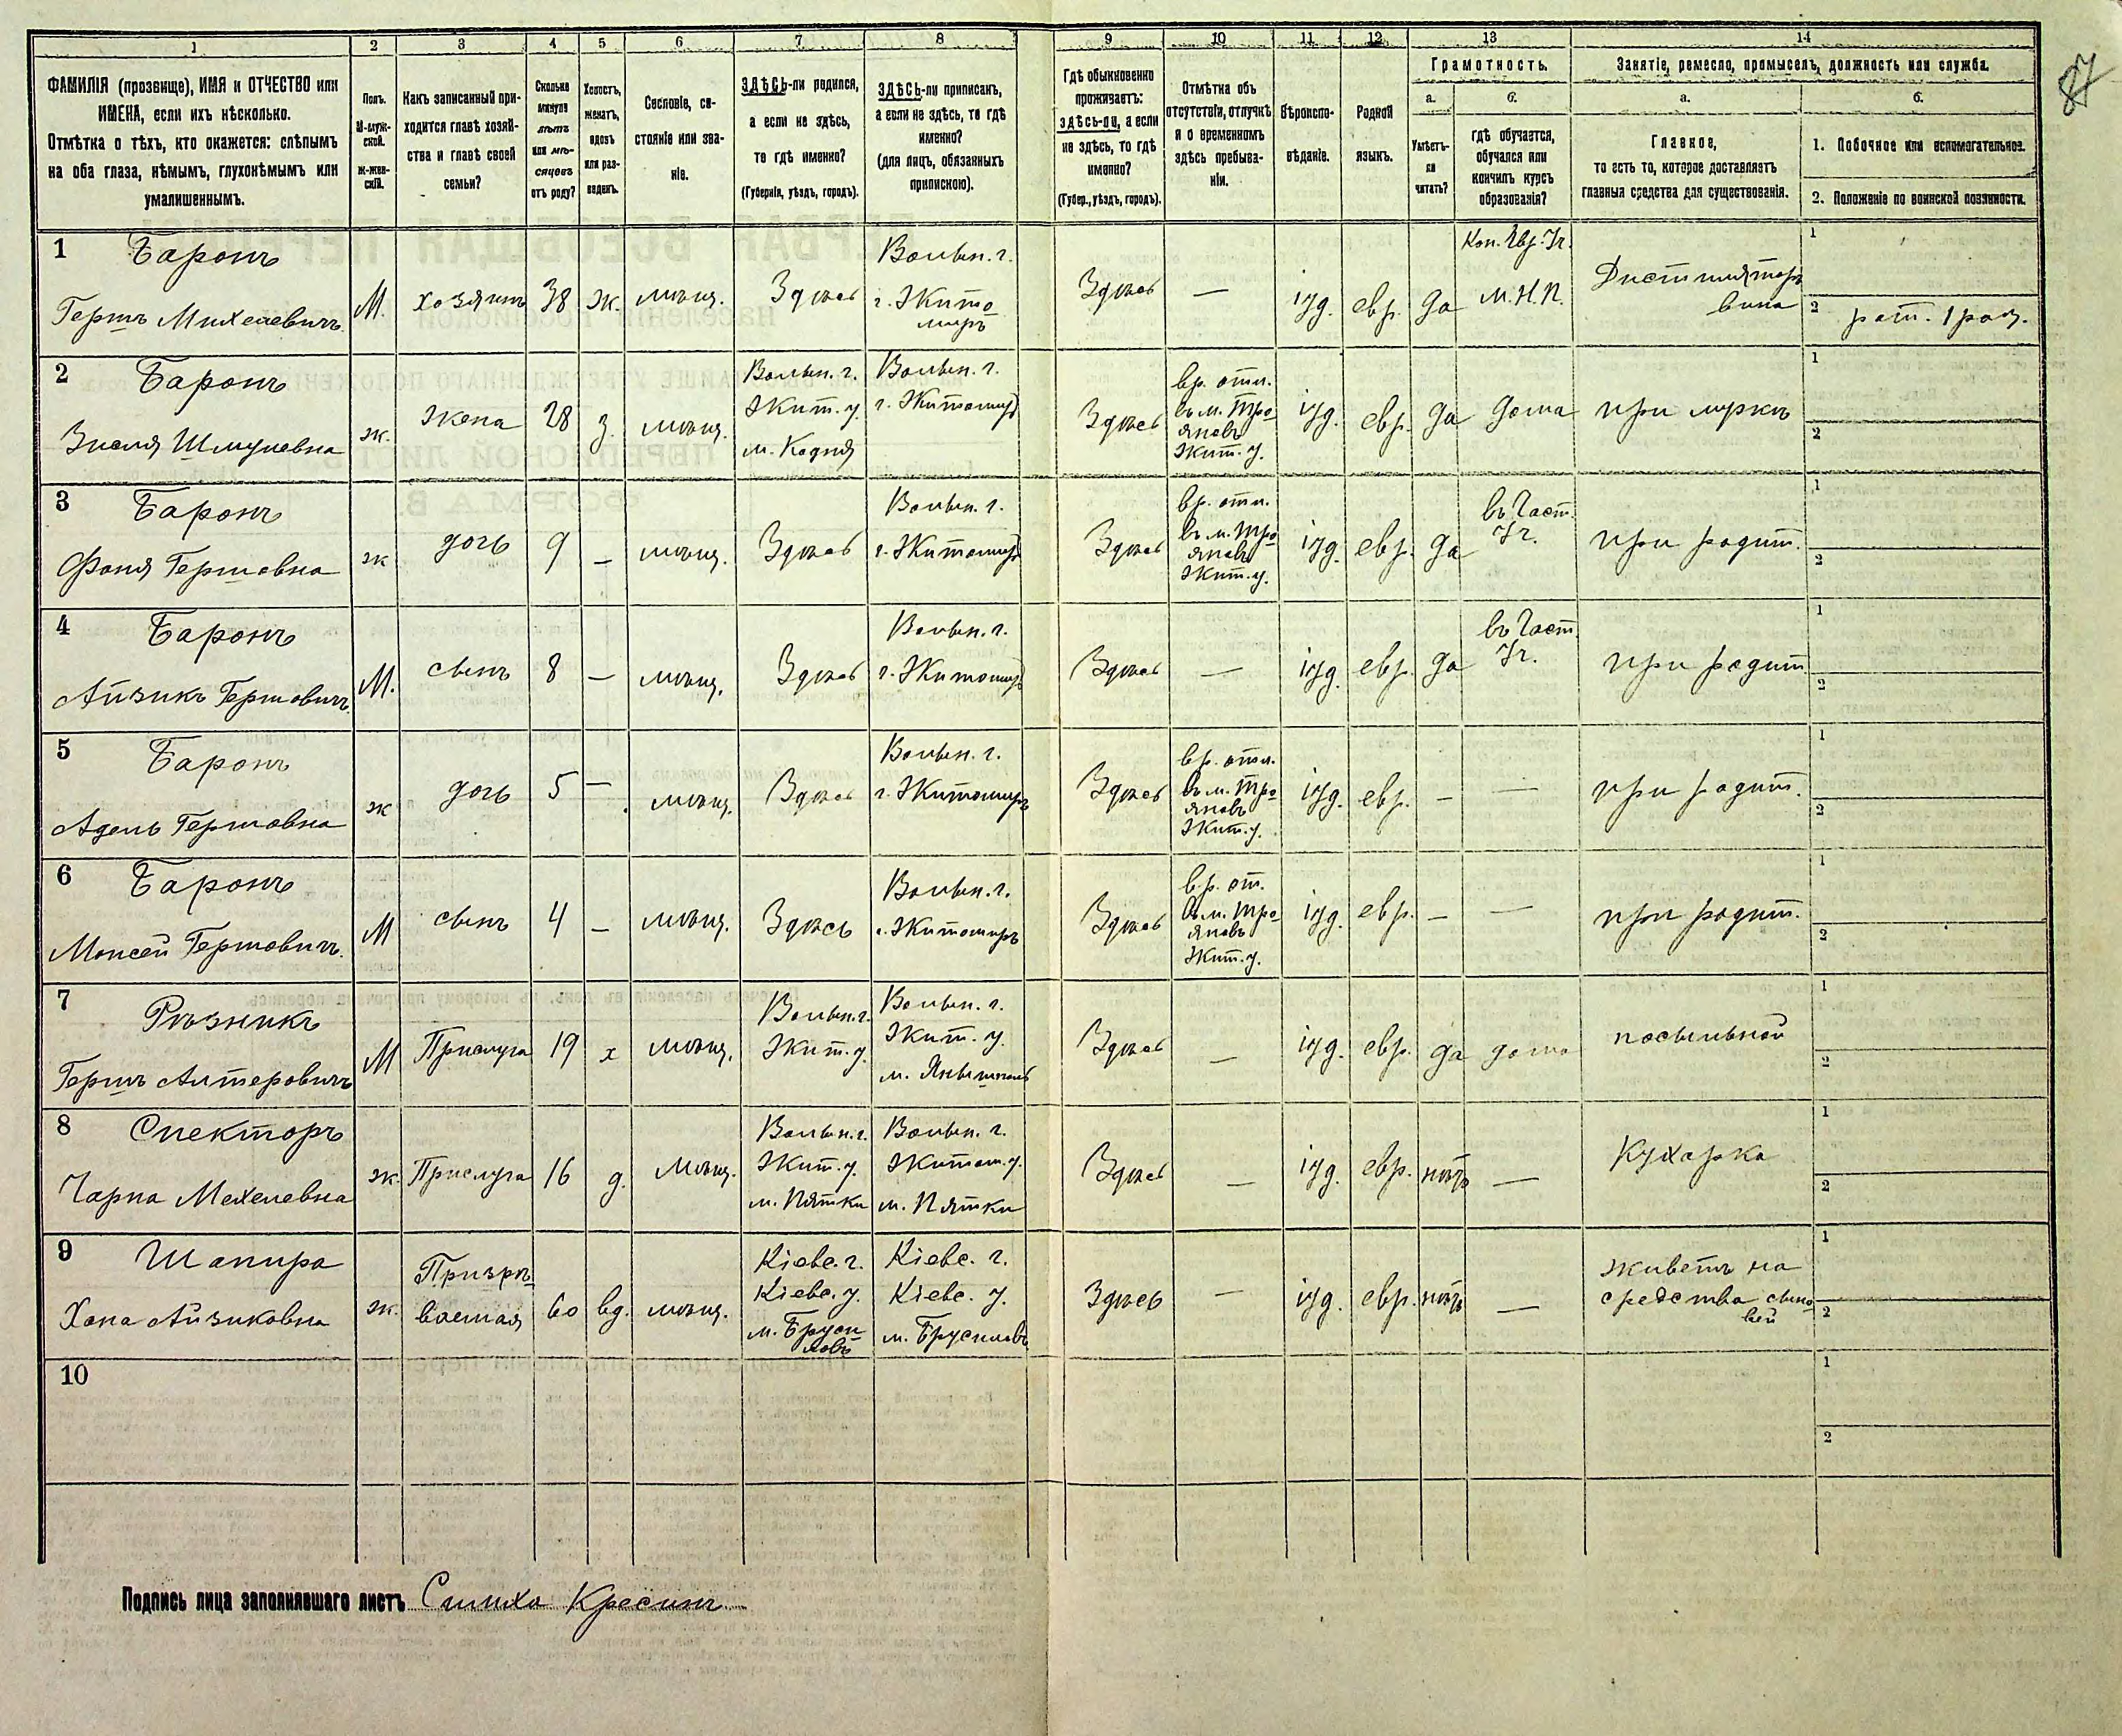 87
1 2 3 4 5 6 7 8 9 10 11 12 13 14
ФАМИЛІЯ (прозвище), ИМЯ и ОТЧЕСТВО или
ИМЕНА, если ихъ нѣсколько.
Отмѣтка о тѣхъ, кто окажется: слѣпымъ
на оба глаза, нѣмымъ, глухонѣмымъ или
умалишеннымъ.
Полъ.
М-муж-
ской.
Ж-жен-
скій.
Какъ записанный при-
ходится главѣ хозяй-
ства и главѣ своей
семьи?
Сколько
минуло
лѣтъ
или мѣ-
сяцевъ
отъ роду?
Холостъ,
женатъ,
вдовъ
или раз-
веденъ.
Сословіе, со-
стояніе или зва-
ніе.
ЗДѢСЬ-ли родился,
а если не здѣсь,
то гдѣ именно?
(Губернія, уѣздъ, городъ).
ЗДѢСЬ-ли приписанъ,
а если не здѣсь, то гдѣ
именно?
(для лицъ, обязанныхъ
припиской).
Гдѣ обыкновенно
проживаетъ:
здѣсь-ли, а если
не здѣсь, то гдѣ
именно?
(Губер., уѣздъ, городъ).
Отмѣтка объ
отсутствіи, отлучкѣ
и о временномъ
здѣсь пребыва-
ніи.
Вѣроиспо-
вѣданіе.
Родной
языкъ.
Грамотность.
а.
Умѣетъ-
ли
читать?
б.
гдѣ обучается,
обучался или
кончилъ курсъ
образованія?
Занятіе, ремесло, промыселъ, должность или служба.
а.
Главное,
то есть то, которое доставляетъ
главныя средства для существованія.
б.
1. Побочное или вспомогательное.
2. Положеніе по воинской повинности.
1
Баронъ
Гершъ Михелевичъ
М.
хозяинъ
38
ж.
мѣщ.
Здѣсь
Волын. г.
г. Жито
миръ
Здѣсь
—
іуд.
евр.
да
Кон. Евр. Уч.
М.Н.П.
Дистиляторъ
вина
1
2 рат. 1 раз.
2
Баронъ
Зисля Шмулевна
ж.
Жена
28
з.
мѣщ.
Волын. г.
Жит. у.
м. Кодня
Волын. г.
г. Житомиръ
Здѣсь
вр. отл.
въ м. Тро
яновъ
Жит. у.
іуд.
евр.
да
дома
при мужѣ
1
2
3
Баронъ
Фаня Гершовна
ж
дочь
9
—
мѣщ.
Здѣсь
Волын. г.
г. Житомиръ
Здѣсь
вр. отл.
въ м. Тро
яновъ
Жит. у.
іуд.
евр.
да
въ Част.
Уч.
при родит.
1
2
4
Баронъ
Айзикъ Гершовичъ
М.
сынъ
8
—
мѣщ.
Здѣсь
Волын. г.
г. Житомиръ
Здѣсь
—
іуд.
евр.
да
въ Част.
Уч.
при родит.
1
2
5
Баронъ
Адель Гершовна
ж
дочь
5
—
мѣщ.
Здѣсь
Волын. г.
г. Житомиръ
Здѣсь
вр. отл.
въ м. Тро
яновъ
Жит. у.
іуд.
евр.
—
—
при родит.
1
2
6
Баронъ
Моисей Гершовичъ
М
сынъ
4
—
мѣщ.
Здѣсь
Волын. г.
г. Житомиръ
Здѣсь
вр. от.
въ м. Тро
яновъ
Жит. у.
іуд.
евр.
—
—
при родит.
1
2
7
Рѣзникъ
Гершъ Алтеровичъ
М
Прислуга
19
х
мѣщ.
Волын. г.
Жит. у.
Волын. г.
Жит. у.
м. Янушполь
Здѣсь
—
іуд.
евр.
да
дома
посыльной
1
2
8
Спекторъ
Чарна Мехелевна
ж.
Прислуга
16
д.
Мѣщ.
Волын. г.
Жит. у.
м. Пятки
Волын. г.
Житом. у.
м. Пятки
Здѣсь
—
іуд.
евр.
нѣтъ
—
Кухарка
1
2
9
Шапира
Хана Айзиковна
ж.
Призрѣ
ваемая
60
вд.
мѣщ.
Кіевс. г.
Кіевс. у.
м. Бруси
ловъ
Кіевс. г.
Кіевс. у.
м. Брусиловъ
Здѣсь
—
іуд.
евр.
нѣтъ
—
живетъ на
средства сыно
вей
1
2
10
1
2
Подпись лица заполнявшаго листъ Симха Кресинъ